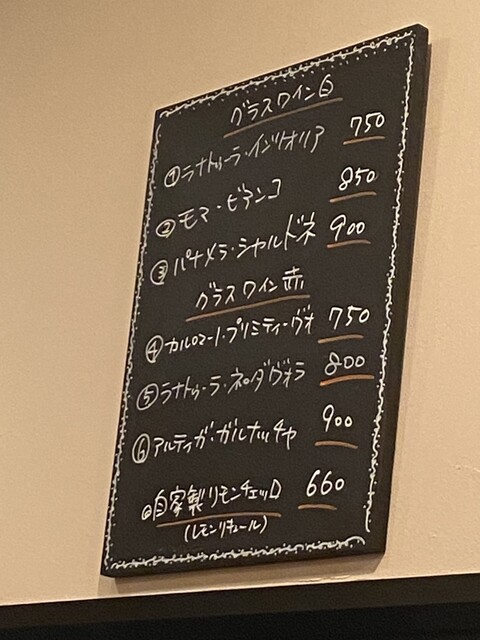 グラスワイン白
①ラナトゥーラ・インツォリア 750
②モマ・ビアンコ 850
③パナメラ・シャルドネ 900
グラスワイン赤
④カルロマート・プリミティーヴォ 750
⑤ラナトゥーラ・ネロダヴォラ 800
⑥アルティガ・ガルナッチャ 900
自家製リモンチェッロ 660
(レモンリキュール)